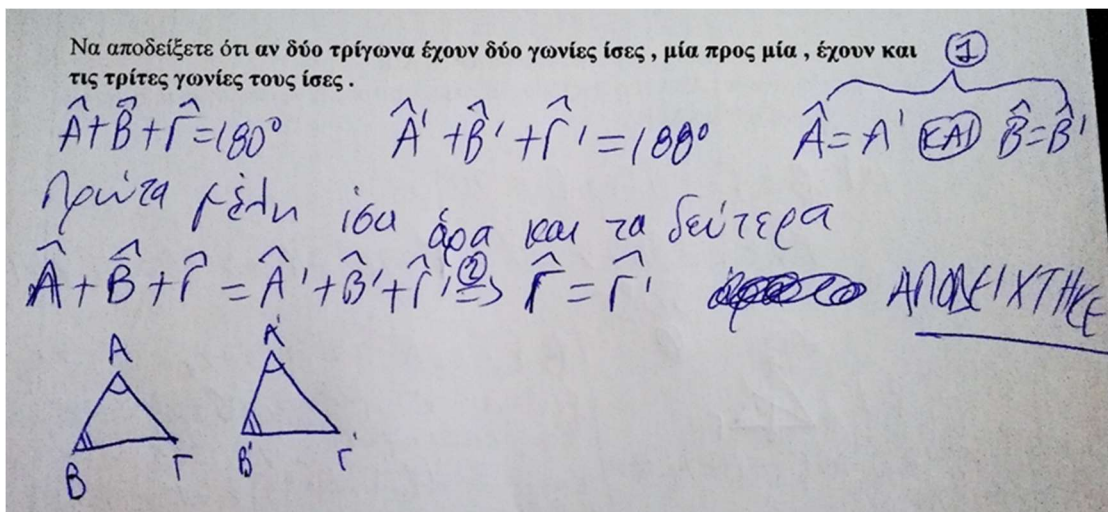 Να αποδείξετε ότι αν δύο τρίγωνα έχουν δύο γωνίες ίσες , μία προς μία , έχουν και
τις τρίτες γωνίες τους ίσες .
1
Â+B̂+Γ̂=180° Â'+B̂'+Γ̂'=180° Â=A' ΚΑΙ B̂=B̂'
Πρώτα μέλη ίσα άρα και τα δεύτερα
Â+B̂+Γ̂=Â'+B̂'+Γ̂' ⇒ Γ̂=Γ̂' ΑΠΟΔΕΙΧΤΗΚΕ
Α Α'
Β Γ Β' Γ'